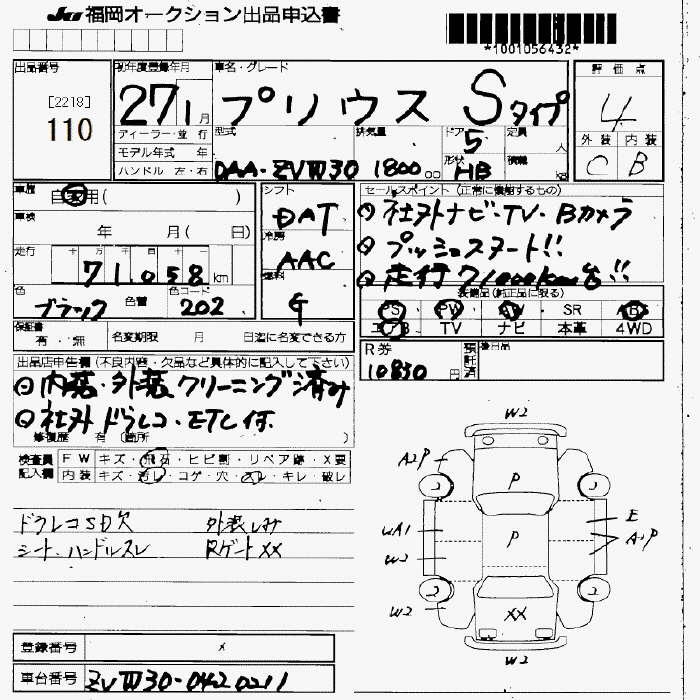 JU 福岡オークション出品申込書
*1001056432*
出品番号 初年度登録年月 車名・グレード 評価点
[2218]
110
27 1月 プリウス Sタイプ 4
ディーラー・並行 型式 排気量 ドア 5 定員 人 外装 内装
モデル年式 年
ハンドル 左・右 DAA-ZVW30 1800cc 形状 HB 積載 kg C B
車歴 自家用( ) シフト セールスポイント(正常に機能するもの)
車検 年 月( 日) DAT ◎社外ナビ・TV・Bカメラ
走行 十 万 千 百 十 一 冷房 ◎プッシュスタート!!
71,058km AAC ◎走行71000km台!!
色 ブラック 色替 色コード 202 燃料 G
装備品(純正品に限る)
PS PW AW SR ABS
エアB TV ナビ 本革 4WD
保証書 有・無 名変期限 月 日迄に名変できる方
R券 10830円 預託済 後日品
出品店申告欄(不良内容・欠品など具体的に記入して下さい)
◎内装・外装クリーニング済み
◎社外ドラレコ・ETC付.
修復歴 有 (箇所 )
検査員 記入欄 FW キズ・飛石・ヒビ割・リペア跡・X要
内装 キズ・汚レ・コゲ・穴・スレ・キレ・破レ
ドラレコSD欠 外装しみ
シート、ハンドルスレ RゲートXX
W2
A2P
P
E
WA1 P A2P
W2
W2 XX
W2
登録番号
車台番号 ZVW30-0420211